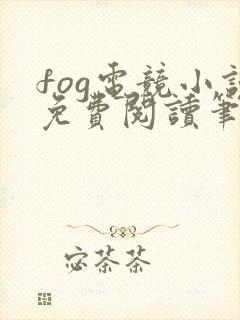 fog電競小說
免費閱讀筆
宓茶茶